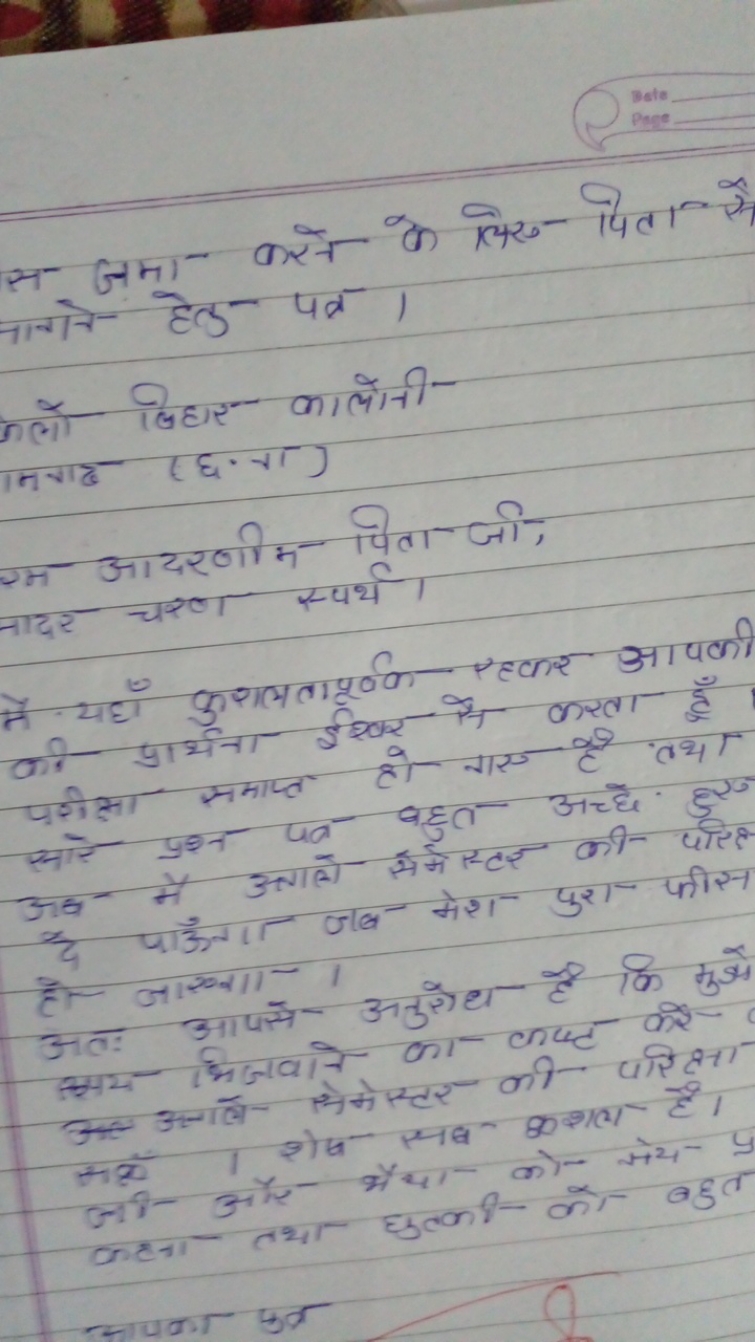 Date
Page
स जमा करने के लिए पिता से
मांगने हेतु पत्र ।
केलो विहार कालोनी
ामगढ (छ.ग)
रम आदरणीय पिता जी,
सादर चरण स्पर्श ।
मैं यहाँ कुशलतापूर्वक रहकर आपकी
की प्रार्थना ईश्वर से करता हूँ ।
परीक्षा समाप्त हो गए है तथा
सारे प्रश्न पत्र बहुत अच्छे हुए
अब मैं अगले सेमेस्टर की परिक्ष
दे पाऊँगा जब मेरा पुरा फीस
हो जाएगा ।
अतः आपसे अनुरोध है कि मुझे
भिजवाने का कष्ट करे
अगले सेमेस्टर की परिक्षा
सकूँ । शेष सब कुशल है ।
जी और भैया को मेरा प्र
कहना तथा छुटकी को बहुत
आपका पुत्र